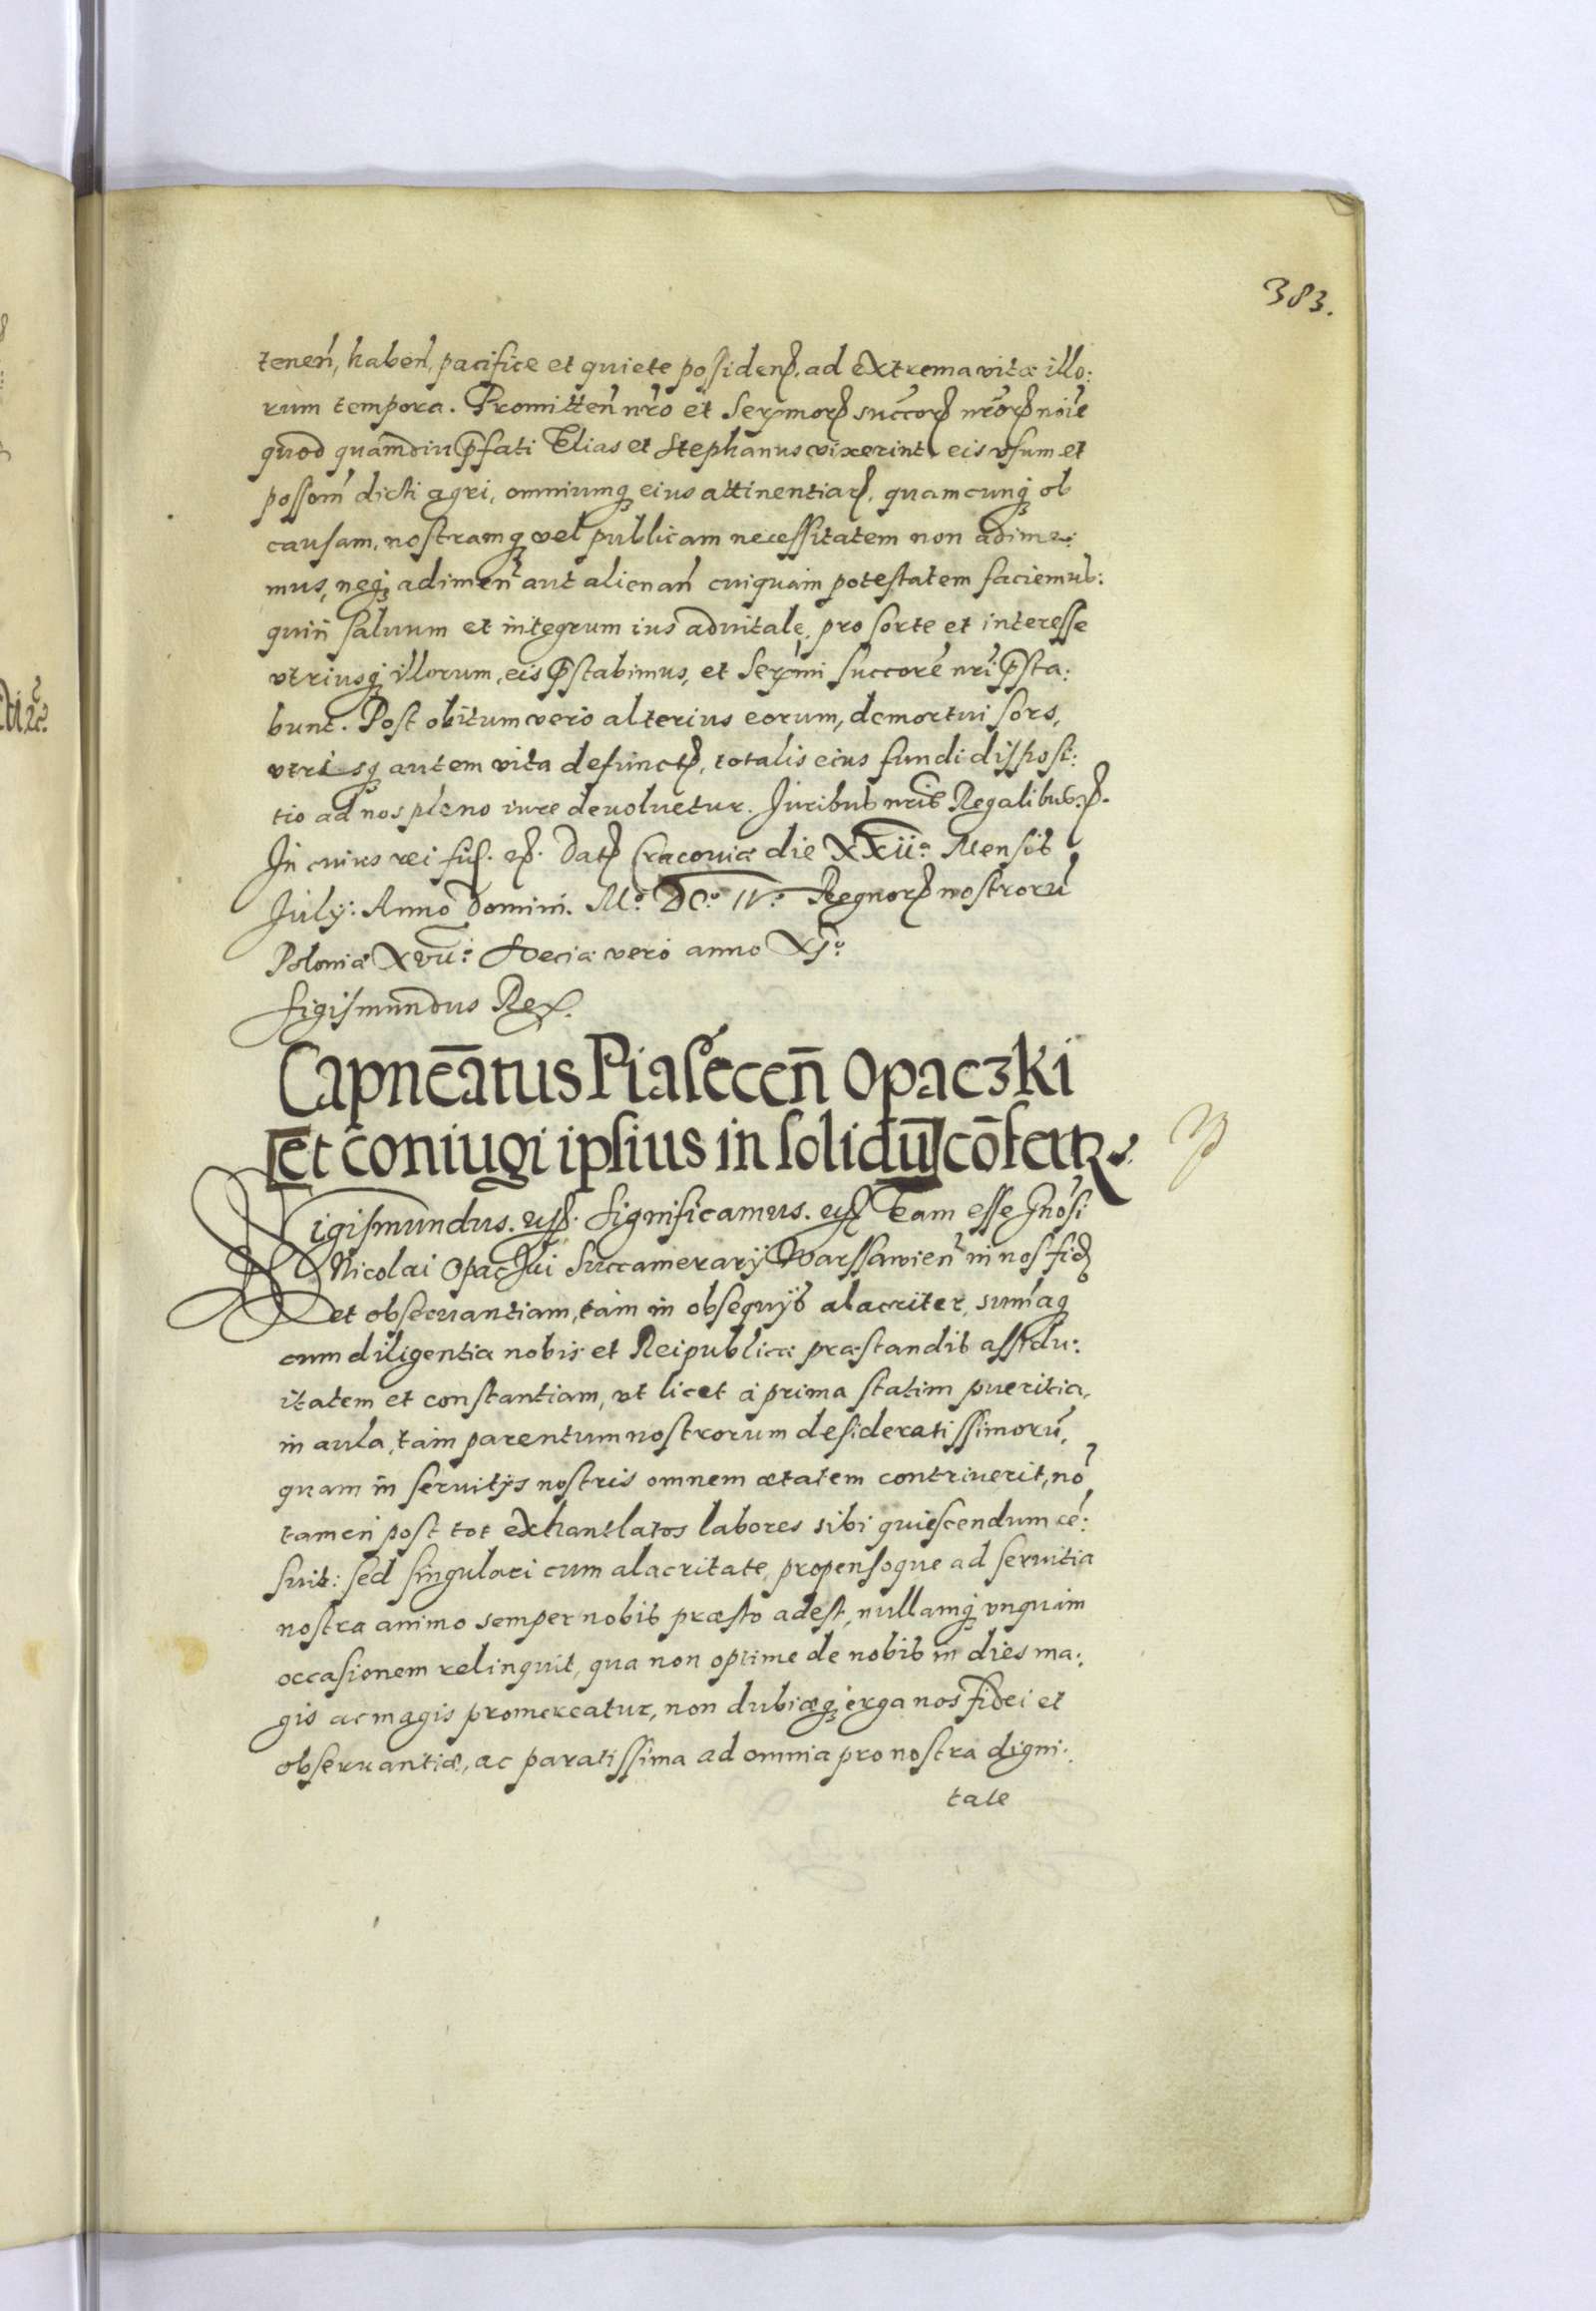 383.
tenen̄, haben̄, pacifice et quiete possidenꝭ, ad extrema vitæ illo:
rum tempora. Promitten̄ nr̄o et Serᵐᵒʳꝭ succorꝭ nr̄orꝭ noīe
quod quamdiu p̄fati Elias et Stephanus vixerint, eis vsum et
posśom̄ dicti agri, omniumqꝫ eius attinentiarꝭ, quamcunqꝫ ob
causam, nostramqꝫ vel publicam necessitatem non adime:
mus, neqꝫ adimen̄ aut alienan̄ cuiquam potestatem faciemus:
quin saluum et integrum ius aduitale, pro sorte et interesse
vtriusqꝫ illorum, eis p̄stabimus, et Serᵐⁱ succorē nr̄i p̄sta:
bunt. Post obitum vero alterius eorum, demortui sors,
vtrisqꝫ autem vita defunctꝭ, totalis eius fundi disposi:
tio ad nos pleno iure deuoluetur. Juribus nr̄is Regalibus. ꝭ.
In cuius rei fiꝭ. eꝭ. Datꝭ Cracouiæ die XXII.ᵃ Mensis
July: Anno Domini. M.º DC.º IV.º Regnorꝭ nostrorū
Poloniæ XVII.º Sueciæ vero anno XI.º
Sigismundus Rex.
Capnēatus Piasecen̄ Opaczki
et coniugi ipsius in solidū confertꝛ.
Sigismundus. eꝭ. Significamus. eꝭ Eam esse Gnōsi
Nicolai Opaczki Succamerarÿ Warssawien̄ in nos fidꝭ
et obseruantiam, tam in obsequÿs alacriter, sum̄aqꝫ
cum diligentia nobis et Reipublicæ præstandis assidu:
itatem et constantiam, vt licet à prima statim pueritia,
in aula, tam parentum nostrorum desideratissimorū,
quam in seruitÿs nostris omnem ætatem contriuerit, nō
tamen post tot exhantlatos labores sibi quiescendum cē:
suit: sed singulari cum alacritate, propensoque ad seruitia
nostra animo semper nobis præsto adest, nullamqꝫ vnquam
occasionem relinquit, qua non optime de nobis in dies ma:
gis ac magis promereatur, non dubiæqꝫ erga nos fidei et
obseruantiæ, ac paratissima ad omnia pro nostra digni:
tate